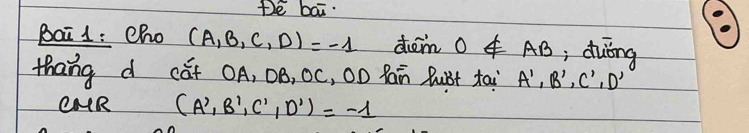 Đề bài.
Bài 1: Cho (A,B,C,D) = -1 điểm O ∉ AB; đường
thẳng d cắt OA, OB, OC, OD lần lượt tại A', B', C', D'
CMR (A', B', C', D') = -1